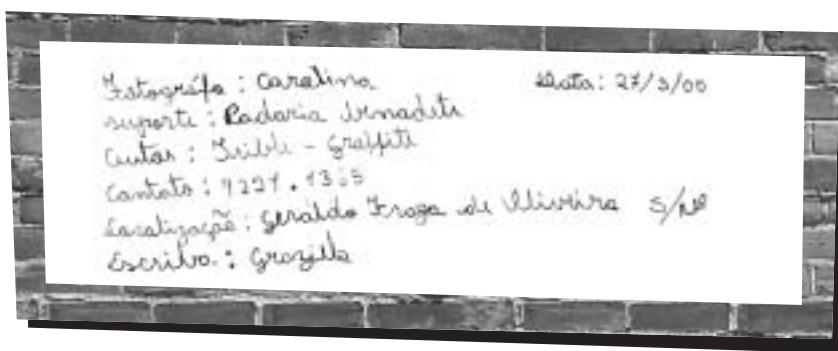 Fotográfa : Carolina Data: 27/3/00
suporte : Padaria
Autor : - Graffiti
Contato :
Localização : Geraldo Fraga de Oliveira S/Nº
Escriba : Graziella